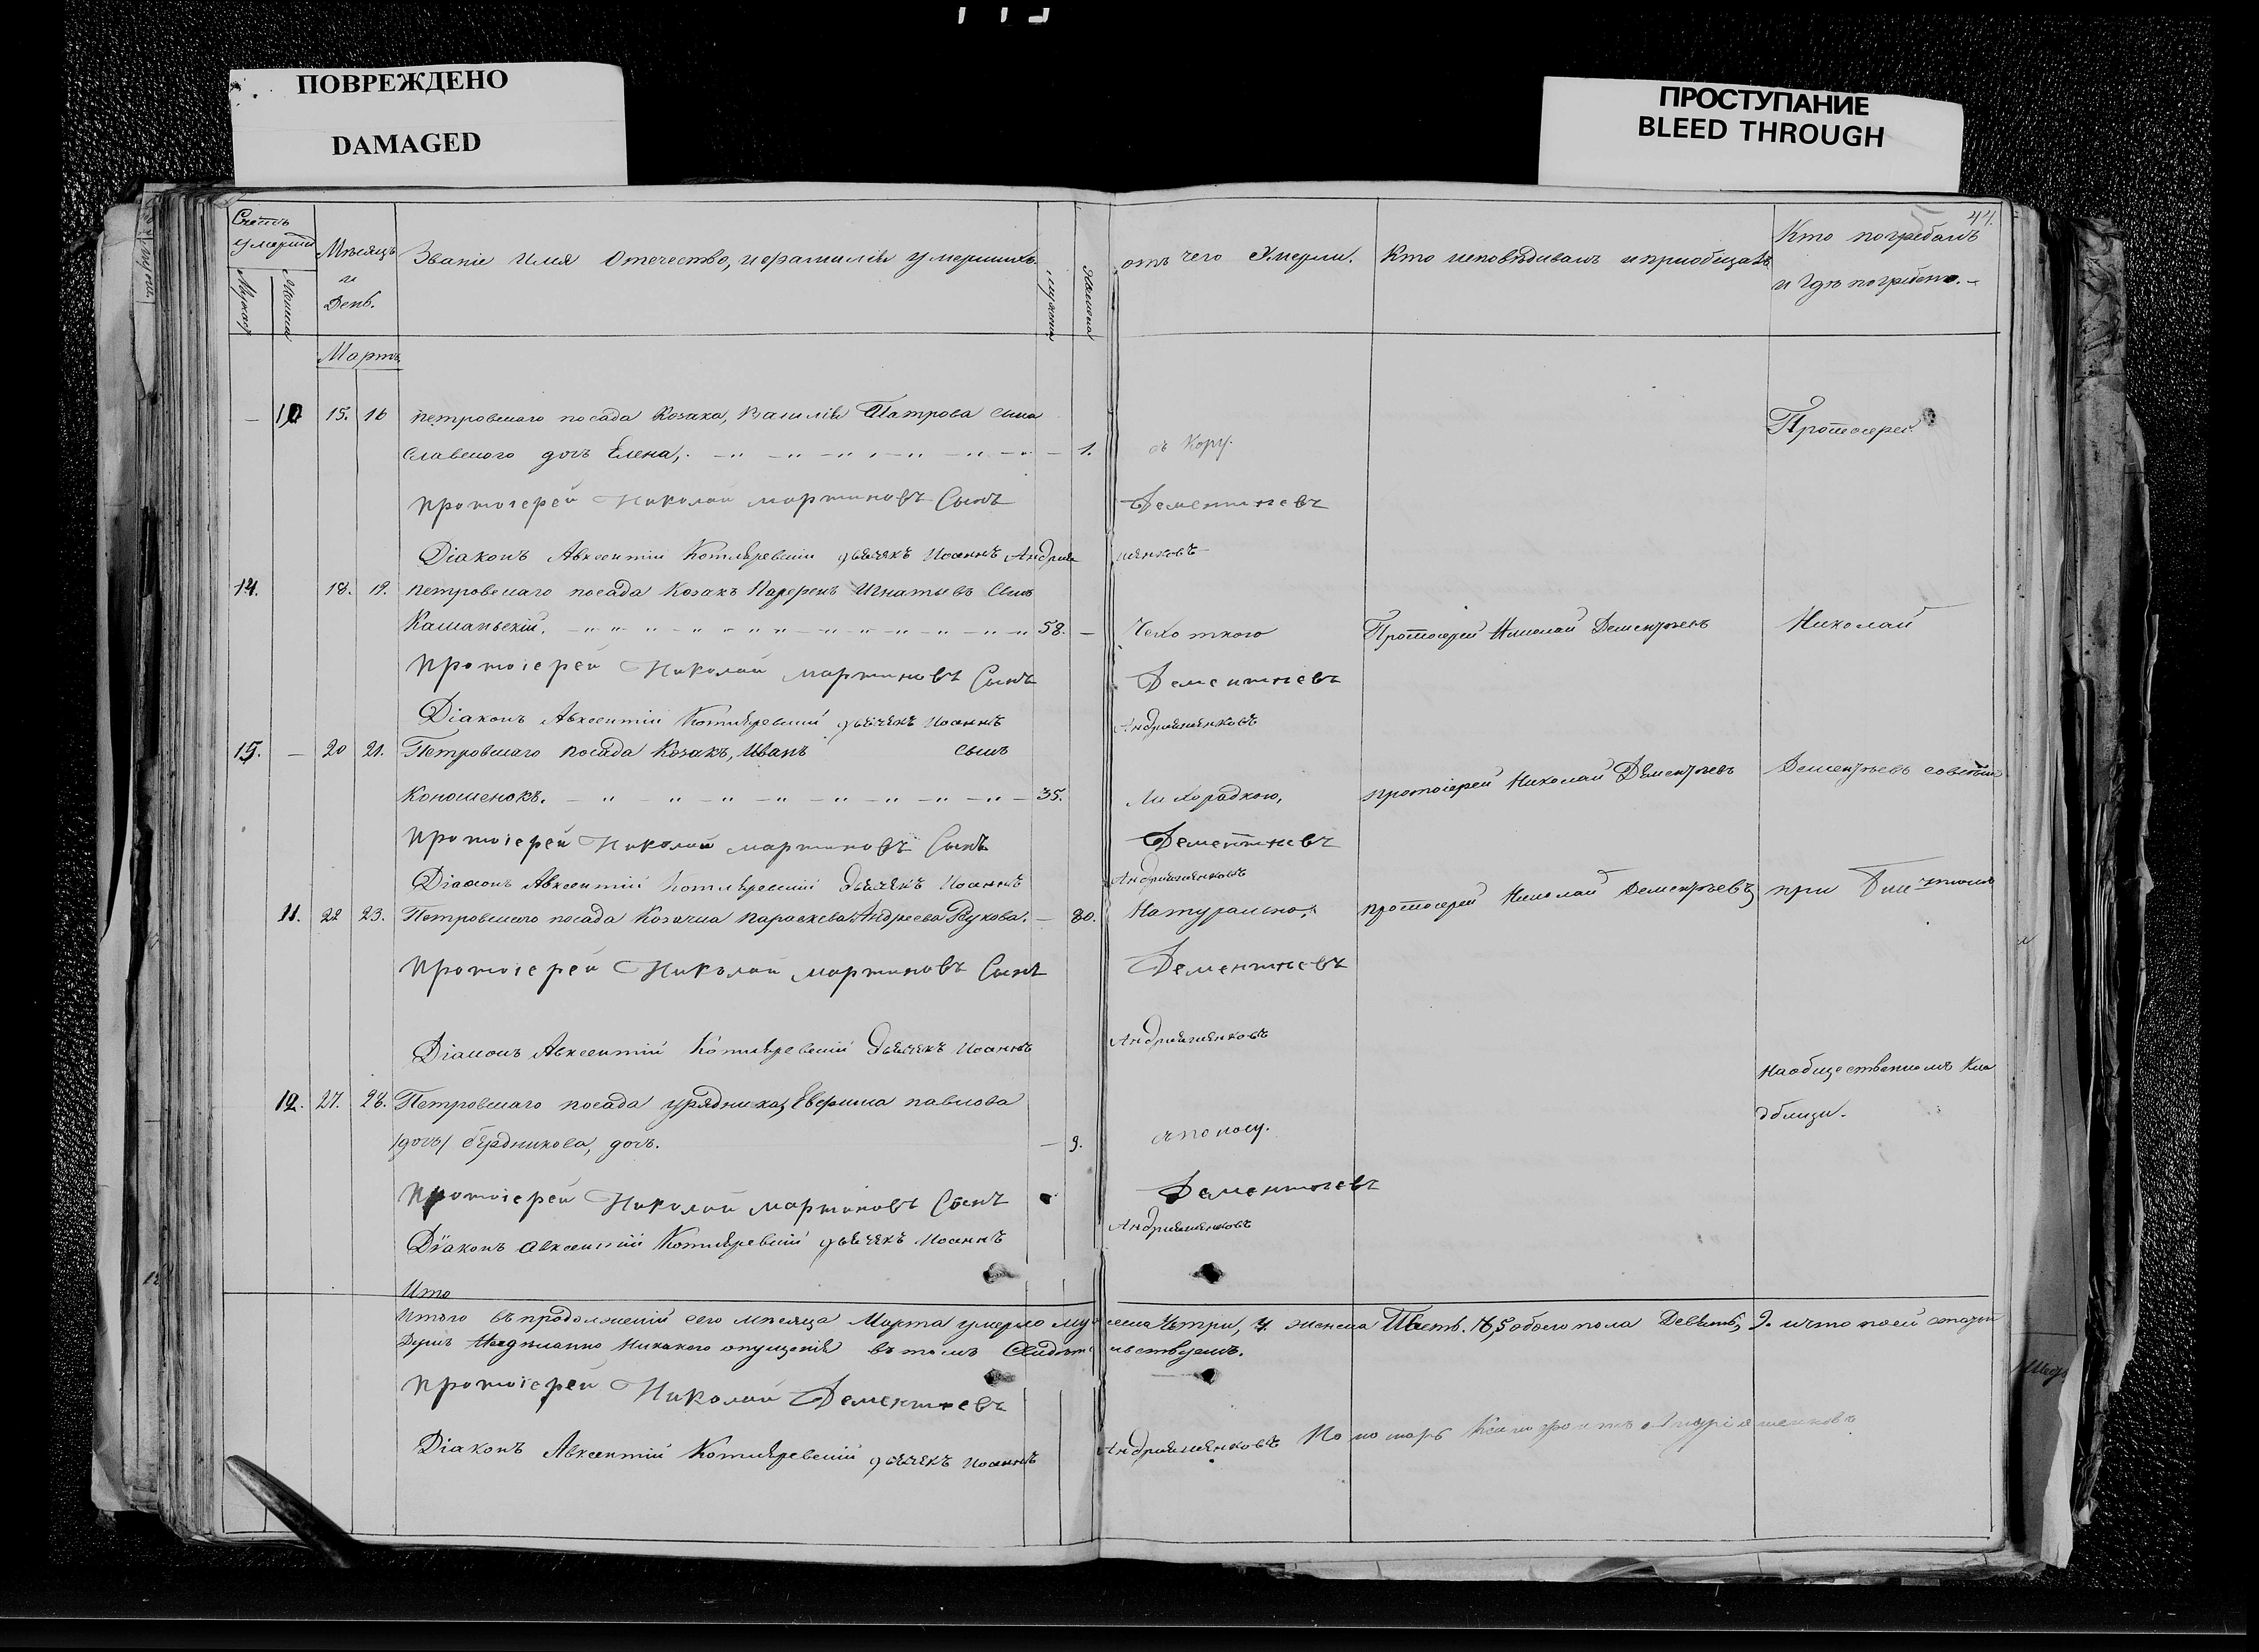 ПОВРЕЖДЕНО
DAMAGED
ПРОСТУПАНИЕ
BLEED THROUGH
44.
Счетъ
Мѣсяцъ
и
День.
Званіе Имя Отечество, и фамилія умершихъ.
отъ чего Умерли.
Кто исповѣдивалъ и приобщалъ
Кто погребалъ
и гдѣ погребено.
Мартъ
— 10 15. 16 петровскаго посада Козака, Василія Петрова сына
Протоіерей
Славского дочь Елена, — 1. съ Кору.
Протоіерей Николай мартиновъ Сынъ Дементьевъ
Діаконъ Авксентій Котляревскій дьячекъ Иоаннъ Андрияшенковъ
14. 18. 19. петровскаго посада Козакъ Парфенъ Игнатьевъ Сынъ
58. — Чехоткою Протоіерей Николай Дементьевъ Николай
Протоіерей Николай мартиновъ Сынъ Дементьевъ
Діаконъ Авксентій Котляревскій дьячекъ Иоаннъ Андрияшенковъ
15. — 20 21. Петровскаго посада Козакъ, Иванъ сынъ
Кононенокъ. 35. Лихорадкою, протоіерей Николай Дементьевъ Дементьевъ
Протоіерей Николай мартиновъ Сынъ Дементьевъ
Діаконъ Авксентій Котляревскій дьячекъ Иоаннъ Андрияшенковъ
11. 22 23. Петровскаго посада Козачка Параскева Андреева — 80. Натурально, протоіерей Николай Дементьевъ при
Протоіерей Николай мартиновъ Сынъ Дементьевъ
Діаконъ Авксентій Котляревскій дьячекъ Иоаннъ Андрияшенковъ
на общественномъ кла
дбищи.
12. 27. 28. Петровскаго посада урядника, Евфима павлова
/дочь/ дочь. — 9. съ поносу.
Протоіерей Николай мартиновъ Сынъ Дементьевъ
Діаконъ Авксентій Котляревскій дьячекъ Иоаннъ Андрияшенковъ
Ито
Итого въ продолженіи сего мѣсяца Марта умерло мужеска Четри, 4. женска Пять. 5 обоего пола Девять, 9. и что
никакого опущенія въ томъ Свидѣтельствуемъ.
Протоіерей Николай Дементьевъ
Діаконъ Авксентій Котляревскій дьячекъ Иоаннъ Андрияшенковъ Пономарь Андріяшенковъ